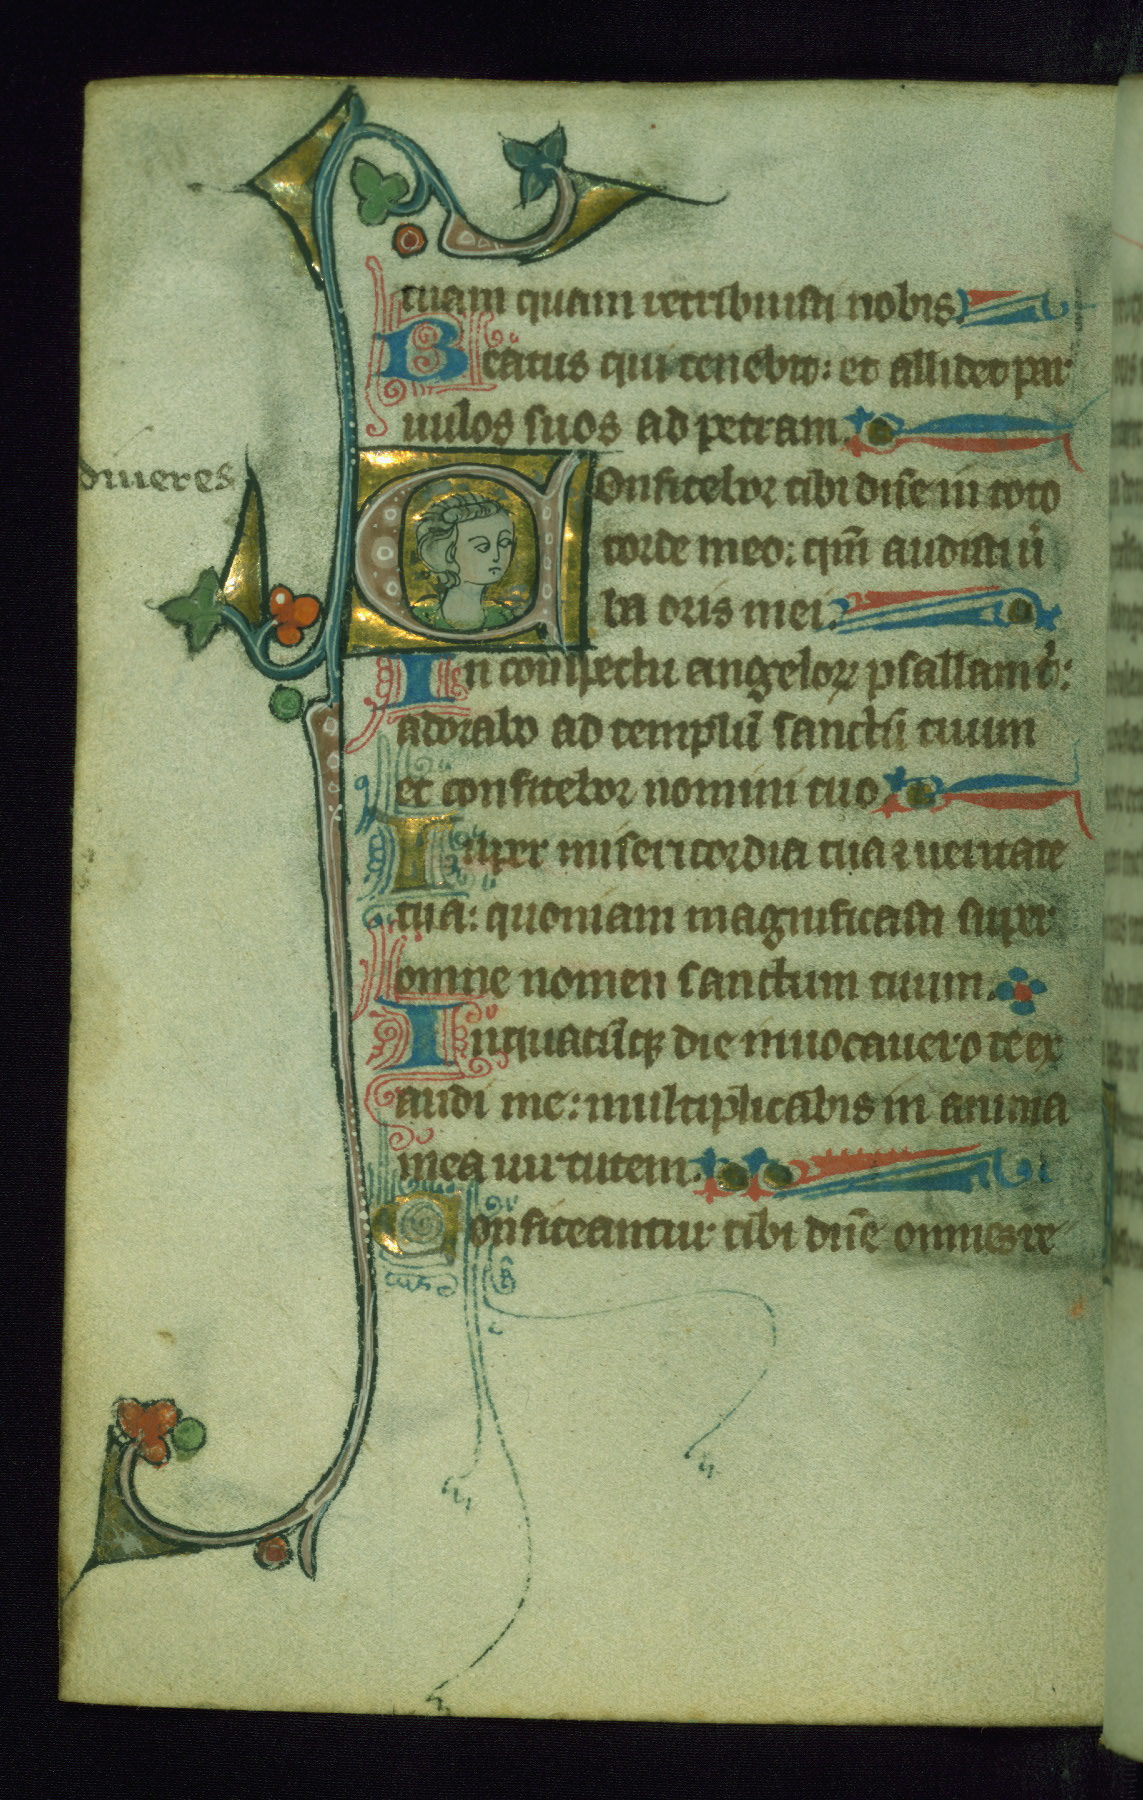 tuam quam retribuisti nobis.
Beatus qui tenebit: et allidet par
uulos suos ad petram.
diueres
Confitebor tibi dn̄e in toto
corde meo: qm̄ audisti u̾
ba oris mei.
In conspectu angeloꝝ psallam t̾:
adorabo ad templū sanctū tuum
et confitebor nomini tuo.
Super misericordia tua ⁊ ueritate
tua: quoniam magnificasti super
omne nomen sanctum tuum.
In quacūqꝫ die inuocauero te ex
audi me: multiplicabis in anima
mea uirtutem.
Confiteantur tibi dn̄e omnes re